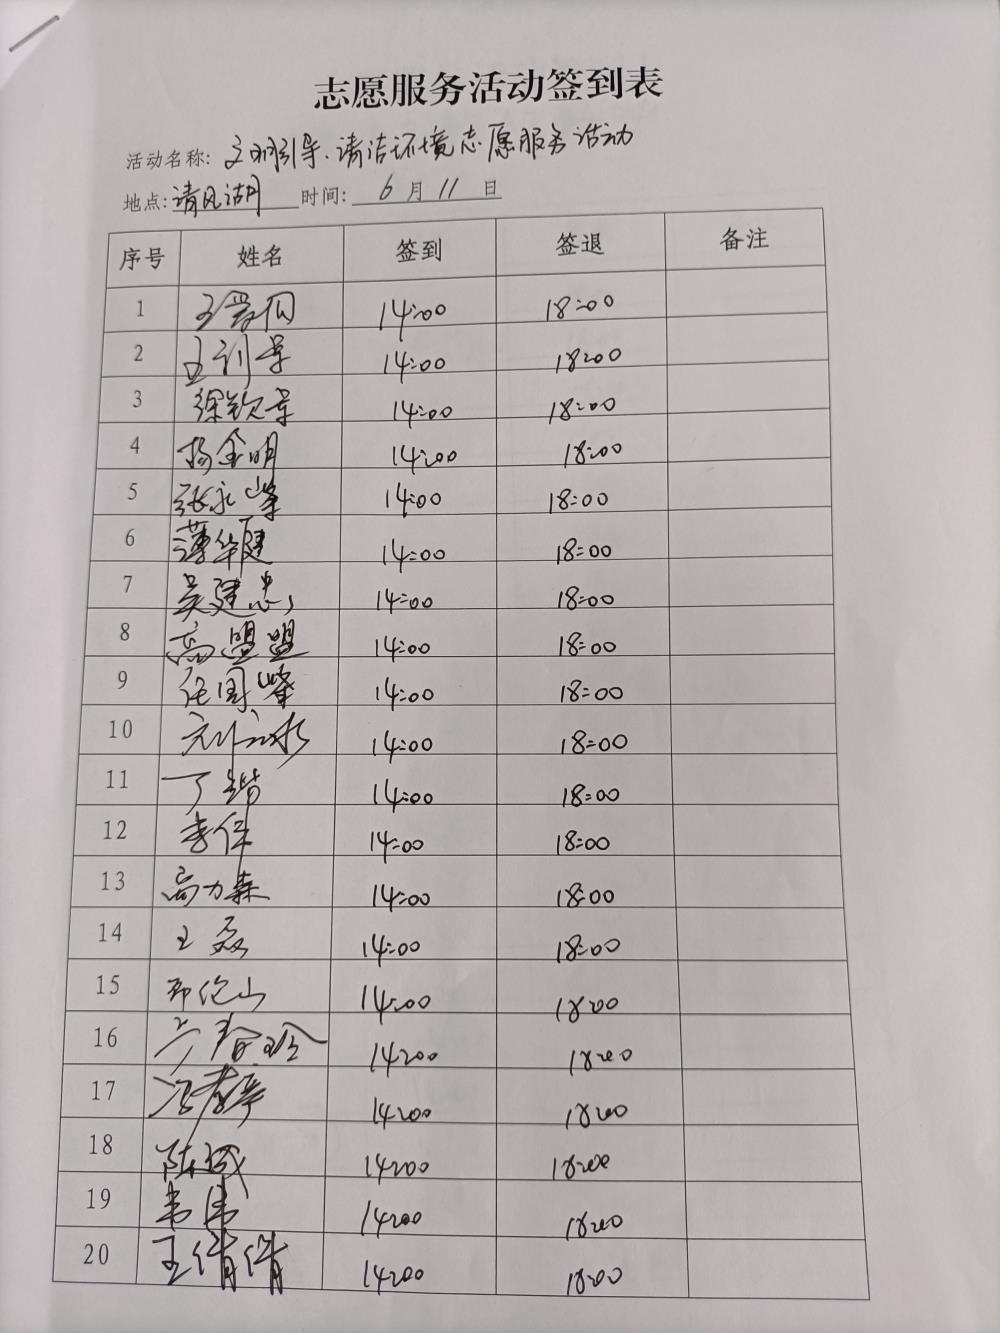 志愿服务活动签到表
活动名称: 文明引导、清洁环境志愿服务活动
地点: 清风湖 时间: 6月11日
序号 姓名 签到 签退 备注
1 14:00 18:00
2 王训学 14:00 18:00
3 徐钦 14:00 18:00
4 杨金明 14:00 18:00
5 张永峰 14:00 18:00
6 薄华健 14:00 18:00
7 吴建忠 14:00 18:00
8 高盟盟 14:00 18:00
9 任国峰 14:00 18:00
10 14:00 18:00
11 丁锴 14:00 18:00
12 李保 14:00 18:00
13 高力森 14:00 18:00
14 王磊 14:00 18:00
15 14:00 18:00
16 14:00 18:00
17 14:00 18:00
18 陈城 14:00 18:00
19 韦伟 14:00 18:00
20 王倩倩 14:00 18:00